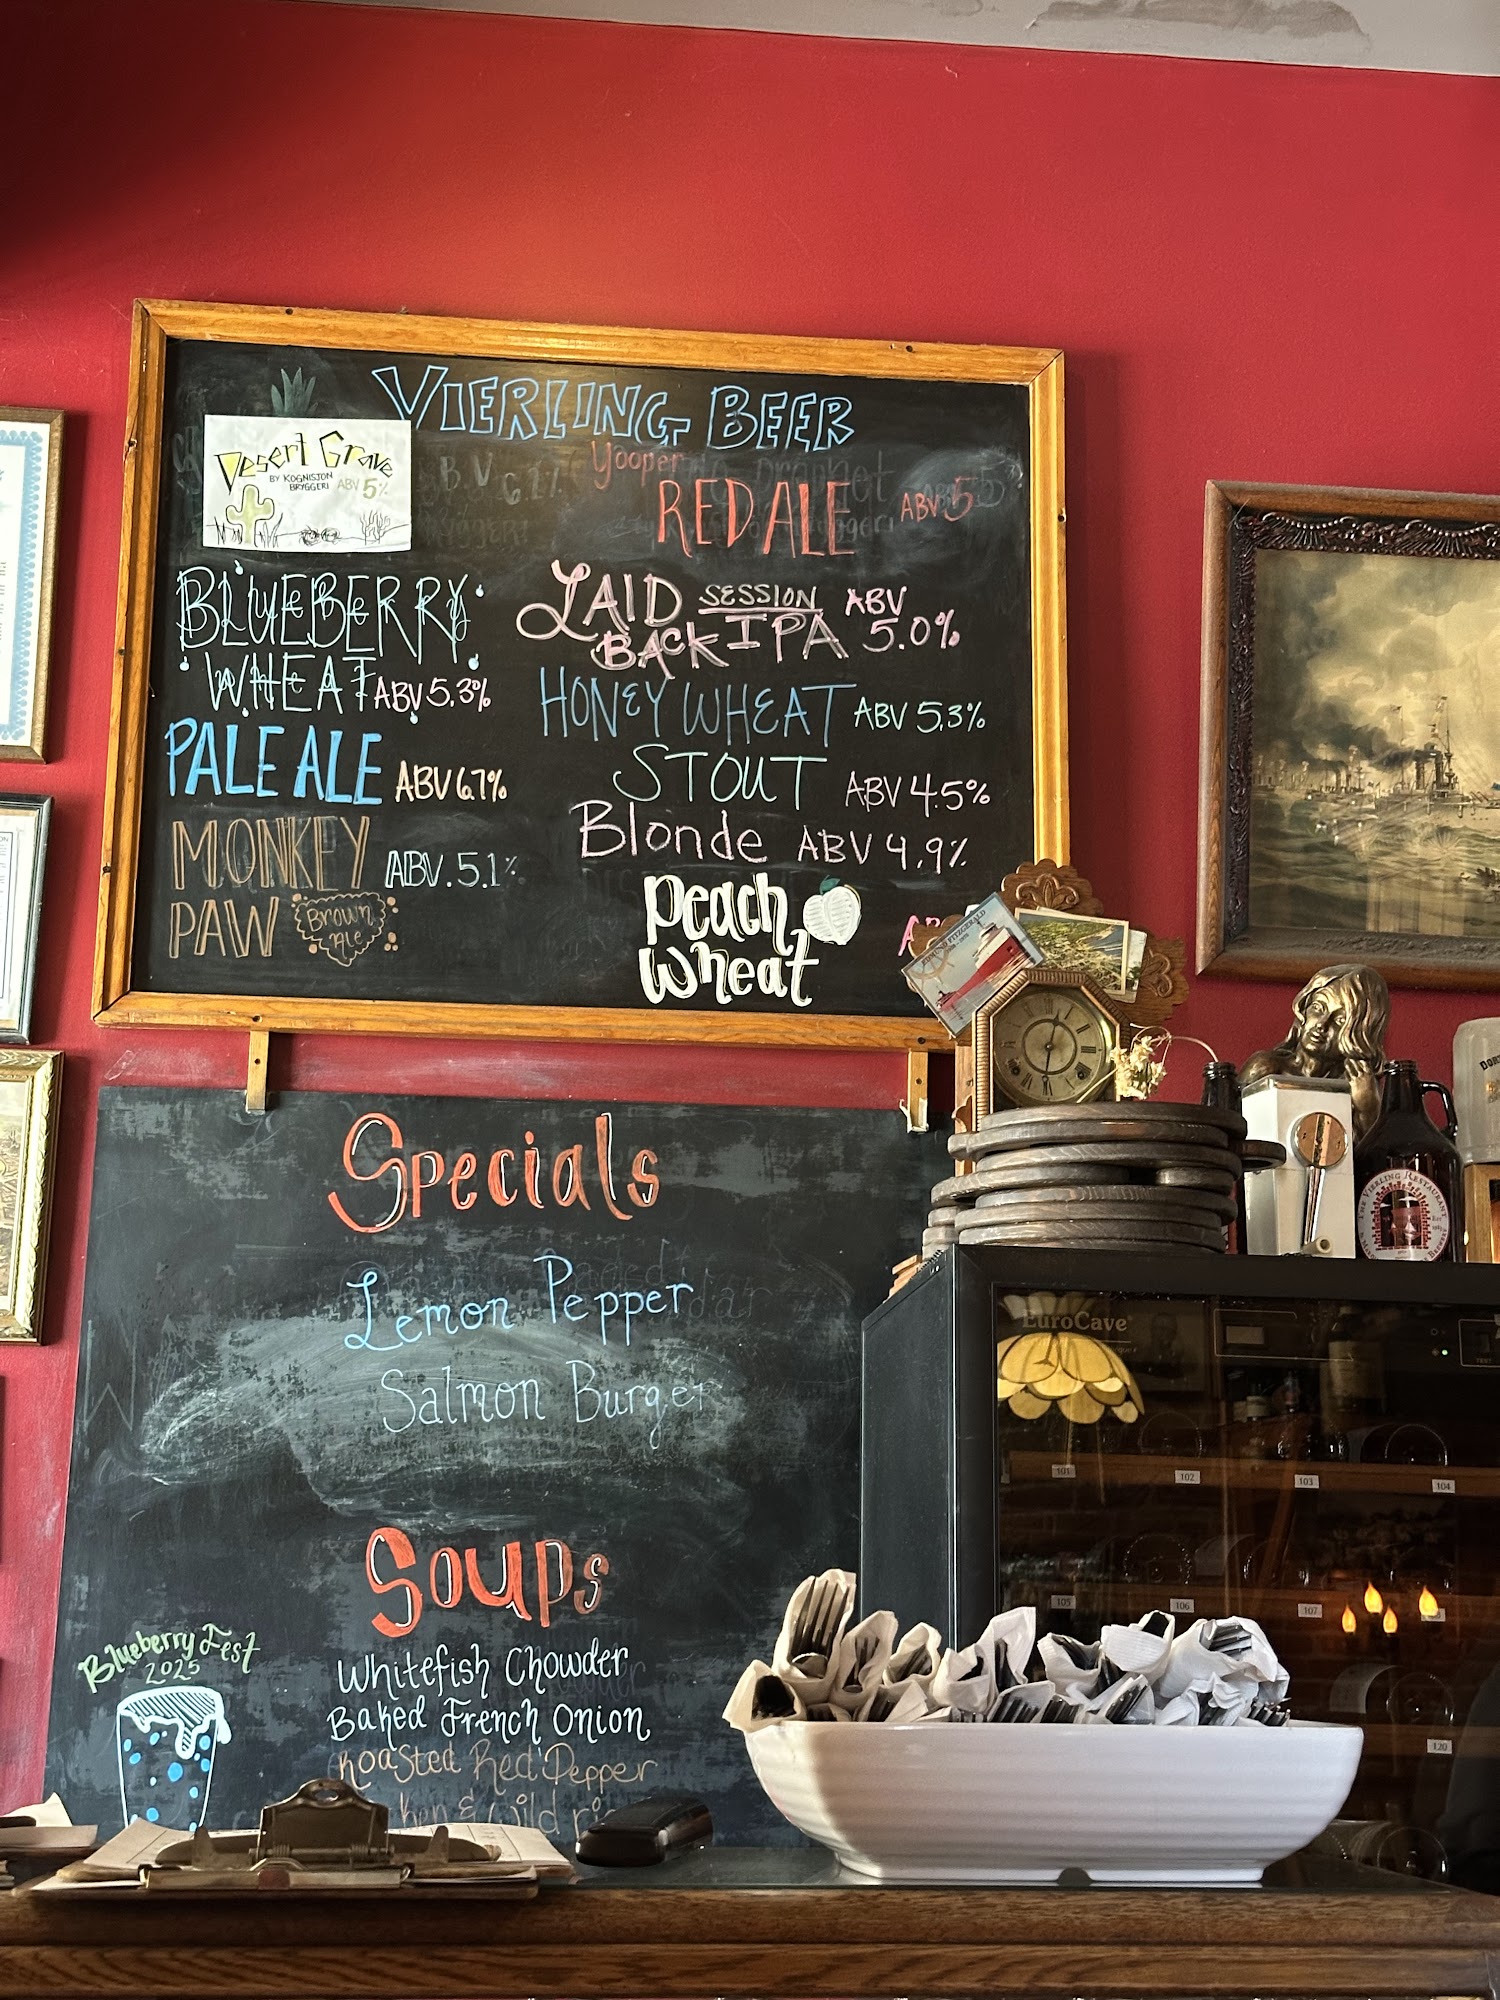 VIERLING BEER
Desert Grave
BY KOGNISJON
BRYGGERI ABV 5%
BLUEBERRY
WHEAT ABV 5.3%
PALE ALE ABV 6.7%
MONKEY ABV. 5.1%
PAW Brown
Ale
Yooper
RED ALE ABV 5
LAID SESSION ABV
BACK IPA 5.0%
HONEY WHEAT ABV 5.3%
STOUT ABV 4.5%
Blonde ABV 4.9%
Peach
Wheat
Specials
Lemon Pepper
Salmon Burger
Soups
Whitefish Chowder
Baked French Onion
Roasted Red Pepper
& Wild
Blueberry Fest
2025
FITZGERALD
THE VIERLING RESTAURANT
EuroCave
101
102
103
104
105
106
107
120